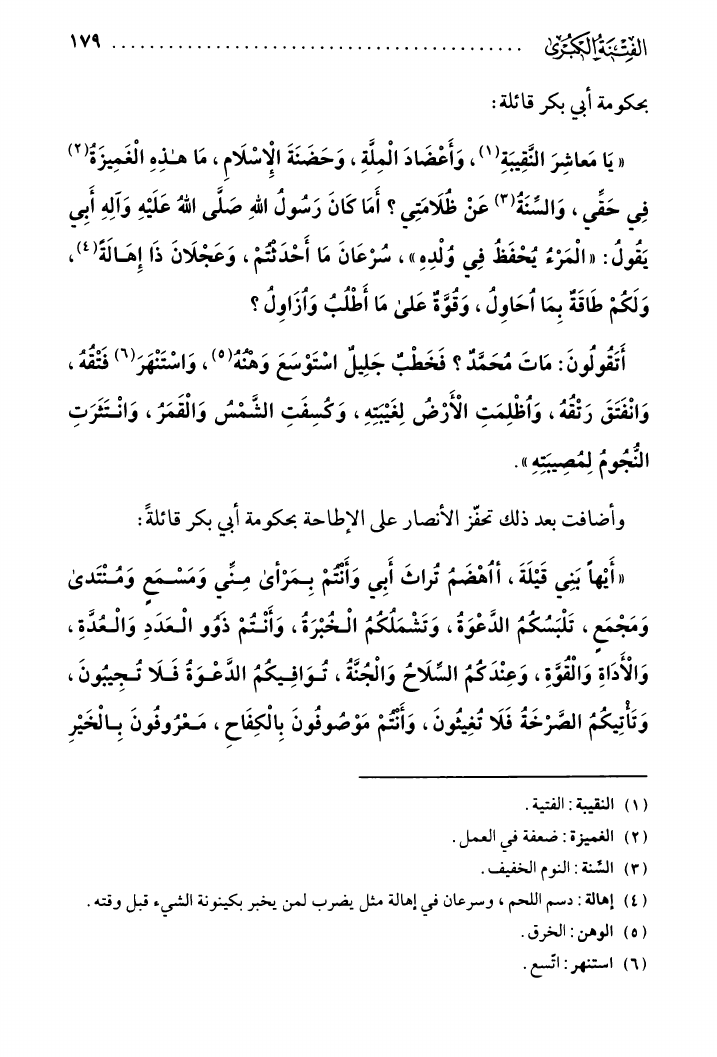 الفتنة الكبرى ........................................ ١٧٩
بحكومة أبي بكر قائلة:
« يَا مَعاشِرَ النَّقِيبَةِ(١) ، وَأَعْضَادَ الْمِلَّةِ ، وَحَضَنَةَ الْإِسْلَامِ ، مَا هٰذِهِ الْغَمِيزَةُ(٢)
فِي حَقِّي ، وَالسِّنَةُ(٣) عَنْ ظُلَامَتِي ؟ أَمَا كَانَ رَسُولُ اللهِ صَلَّى اللهُ عَلَيْهِ وَآلِهِ أَبِي
يَقُولُ: «الْمَرْءُ يُحْفَظُ فِي وُلْدِهِ» ، سُرْعَانَ مَا أَحْدَثْتُمْ ، وَعَجْلَانَ ذَا إِهَـالَةً(٤) ،
وَلَكُمْ طَاقَةٌ بِمَا اُحَاوِلُ ، وَقُوَّةٌ عَلىٰ مَا أَطْلُبُ وَاُزَاوِلُ ؟
أَتَقُولُونَ: مَاتَ مُحَمَّدٌ ؟ فَخَطْبٌ جَلِيلٌ اسْتَوْسَعَ وَهْنُهُ(٥) ، وَاسْتَنْهَرَ(٦) فَتْقُهُ ،
وَانْفَتَقَ رَتْقُهُ ، وَاُظْلِمَتِ الْأَرْضُ لِغَيْبَتِهِ ، وَكُسِفَتِ الشَّمْسُ وَالْقَمَرُ ، وَانْـتَثَرَتِ
النُّجُومُ لِمُصِيبَتِهِ».
وأضافت بعد ذلك تحفّز الأنصار على الإطاحة بحكومة أبي بكر قائلةً:
« أَيْهاً بَنِي قَيْلَةَ ، أاُهْضَمُ تُراثَ أَبِي وَأَنْتُمْ بِـمَرْأىٰ مِـنِّي وَمَسْـمَعٍ وَمُـنْتَدىٰ
وَمَجْمَعٍ ، تَلْبَسُكُمُ الدَّعْوَةُ ، وَتَشْمَلُكُمُ الْـخُبْرَةُ ، وَأَنْـتُمْ ذَوُو الْـعَدَدِ وَالْـعُدَّةِ ،
وَالْأَدَاةِ وَالْقُوَّةِ ، وَعِنْدَكُمُ السِّلَاحُ وَالْجُنَّةُ ، تُـوَافِـيكُمُ الدَّعْـوَةُ فَـلَا تُـجِيبُونَ ،
وَتَأْتِيكُمُ الصَّرْخَةُ فَلَا تُغِيثُونَ ، وَأَنْتُمْ مَوْصُوفُونَ بِالْكِفَاحِ ، مَـعْرُوفُونَ بِـالْخَيْرِ
(١) النقيبة : الفتية .
(٢) الغميزة : ضعفة في العمل .
(٣) السِّنة : النوم الخفيف .
(٤) إهالة : دسم اللحم ، وسرعان في إهالة مثل يضرب لمن يخبر بكينونة الشيء قبل وقته .
(٥) الوهن : الخرق .
(٦) استنهر : اتّسع .